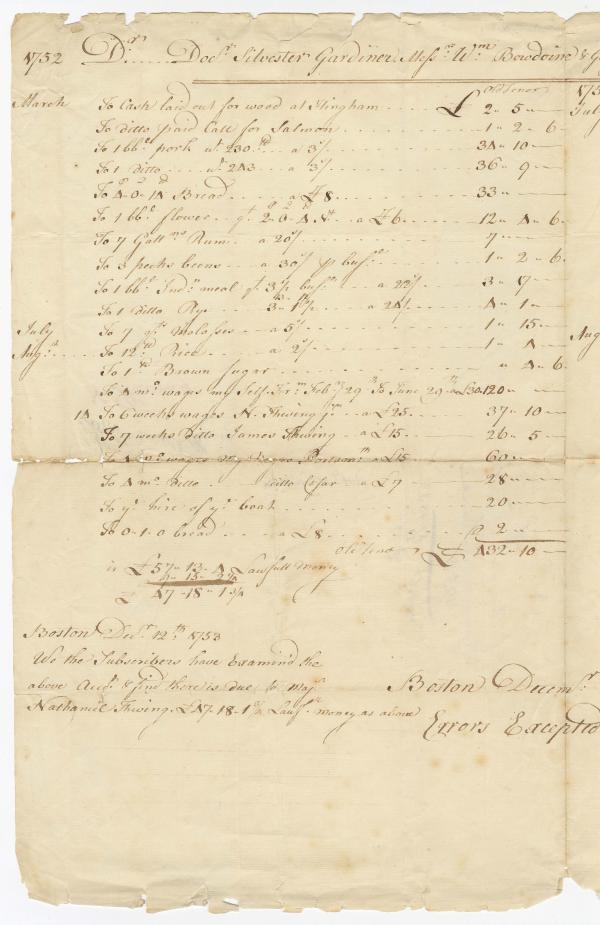 1752 Dr. Docr. Silvester Gardiner, Messrs. Wm. Bowdoine & G
Old Tenor 175
March To Cash laid out for wood at Hingham £ 2" 5" — July
To Ditto paid Call for Salmon 1" 2" 6
To 1 bbl pork wt. 230 lb a 3/ 34" 10" —
To 1 Ditto wt. 243 a 3/ 36" 9" —
To 4-0-14 Bread a £8 33" —
To 1 bbl flower qt. 2-0-4 Nt a £6 12" 4" 6
To 7 Galls. Rum a 20/ 7" —
To 3 pecks beens a 30/ p bush. 1" 2" 6
To 1 bbl Indn. meal qt. 3½ bush. a 22/ 3" 17" —
To 1 Ditto Rye 3" a 24/ 4" 1" —
July To 7 qts. Molasses a 5/ 1" 15" — Aug
Augst. To 12 lb Rice a 2/ 1" 4" —
To 1 lb Brown Sugar " 4" 6
To 4 mo. wages my Self Frm. Feby. 29th To June 29th a £30 120" —
14 To 6 weeks wages N. Thwing jun. a £25 37" 10" —
To 7 weeks Ditto James Thwing a £15 26" 5" —
To 4 mo. wages my Negro a £15 60" —
To 4 mo. Ditto Ditto Cesar a £7 28" —
To ye. hire of ye. boat 20" —
To 0-1-0 bread a £8 2" —
Old Tenor £ 432" 10" —
is £57" 13" 4 Lawfull money
£ 47-18-1
Boston Decr. 12th. 1753
We the Subscribers have Examin'd the
above Acct. & find there is due to Majr. Boston Decemr.
Nathaniel Thwing £47-18-1 Lawfl. money as above
Errors Excepted